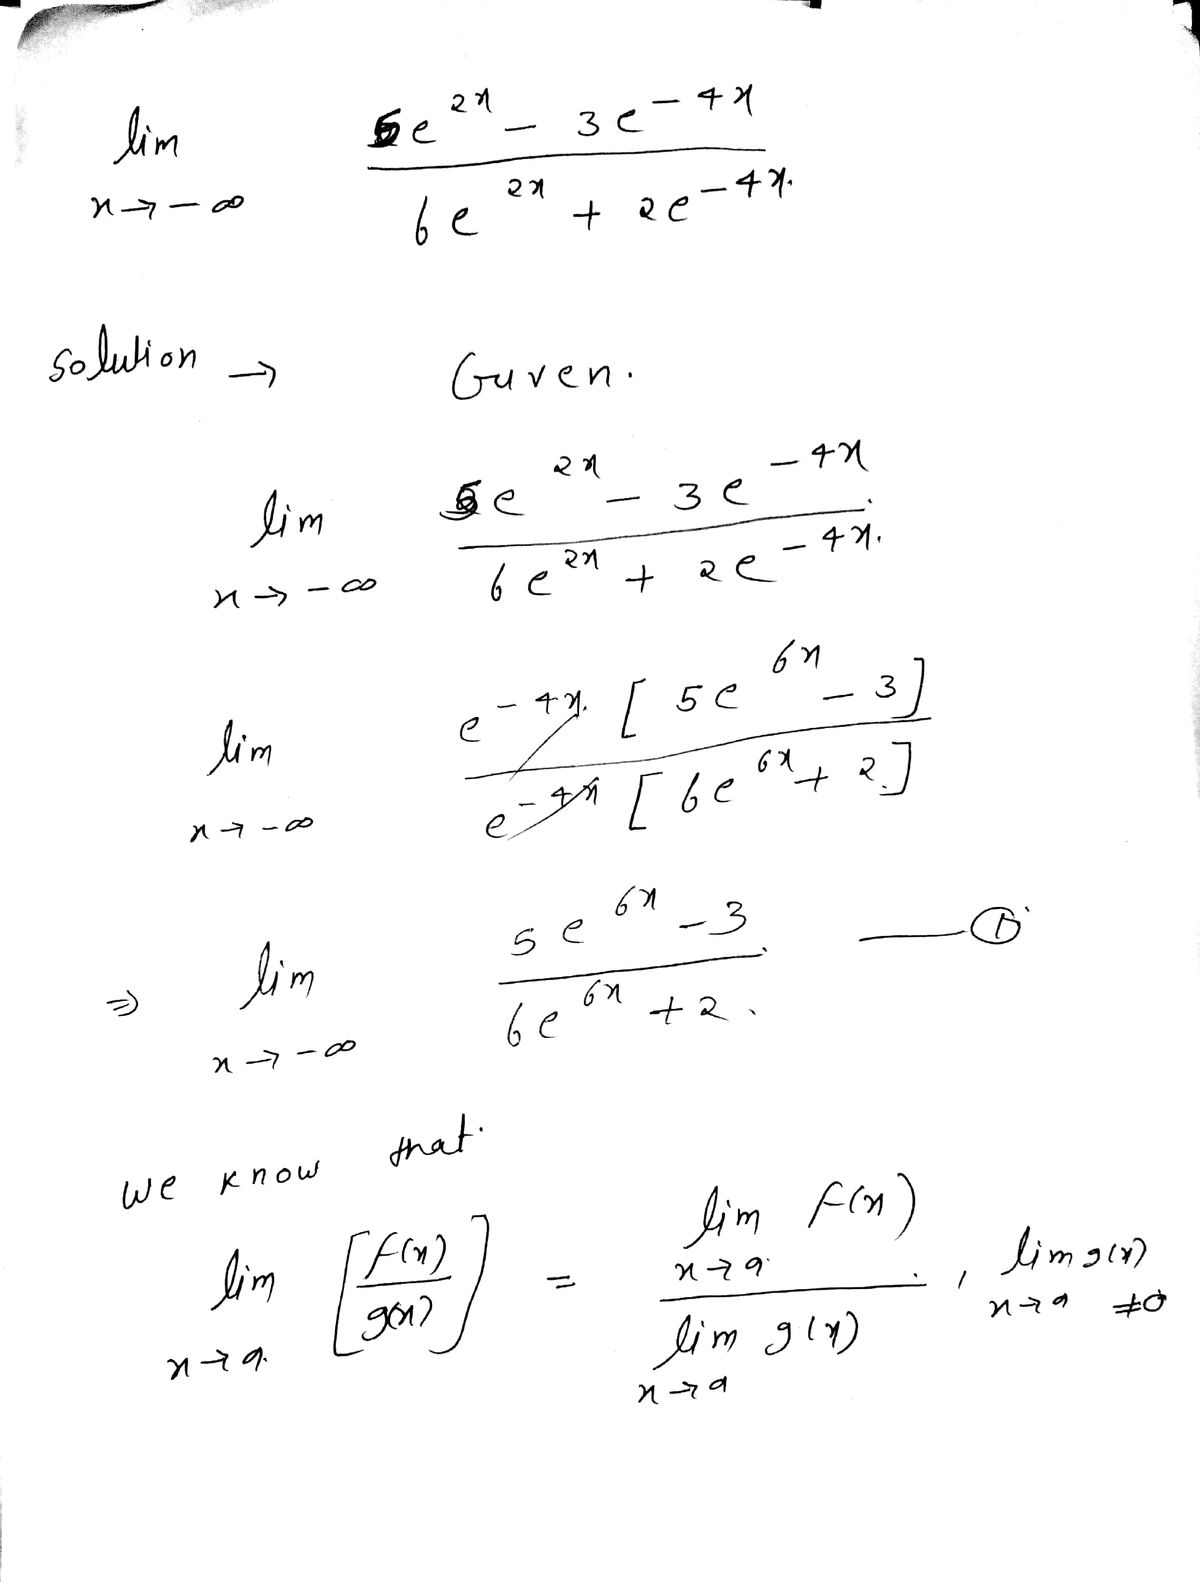 lim x→-∞ (5e^{2x} - 3e^{-4x}) / (6e^{2x} + 2e^{-4x})
solution → Guven.
lim x→-∞ (5e^{2x} - 3e^{-4x}) / (6e^{2x} + 2e^{-4x})
lim x→-∞ (e^{-4x} [5e^{6x} - 3]) / (e^{-4x} [6e^{6x} + 2])
⇒ lim x→-∞ (5e^{6x} - 3) / (6e^{6x} + 2) —— ①
we know that.
lim x→a [f(x) / g(x)] = (lim x→a f(x)) / (lim x→a g(x)), lim x→a g(x) ≠ 0